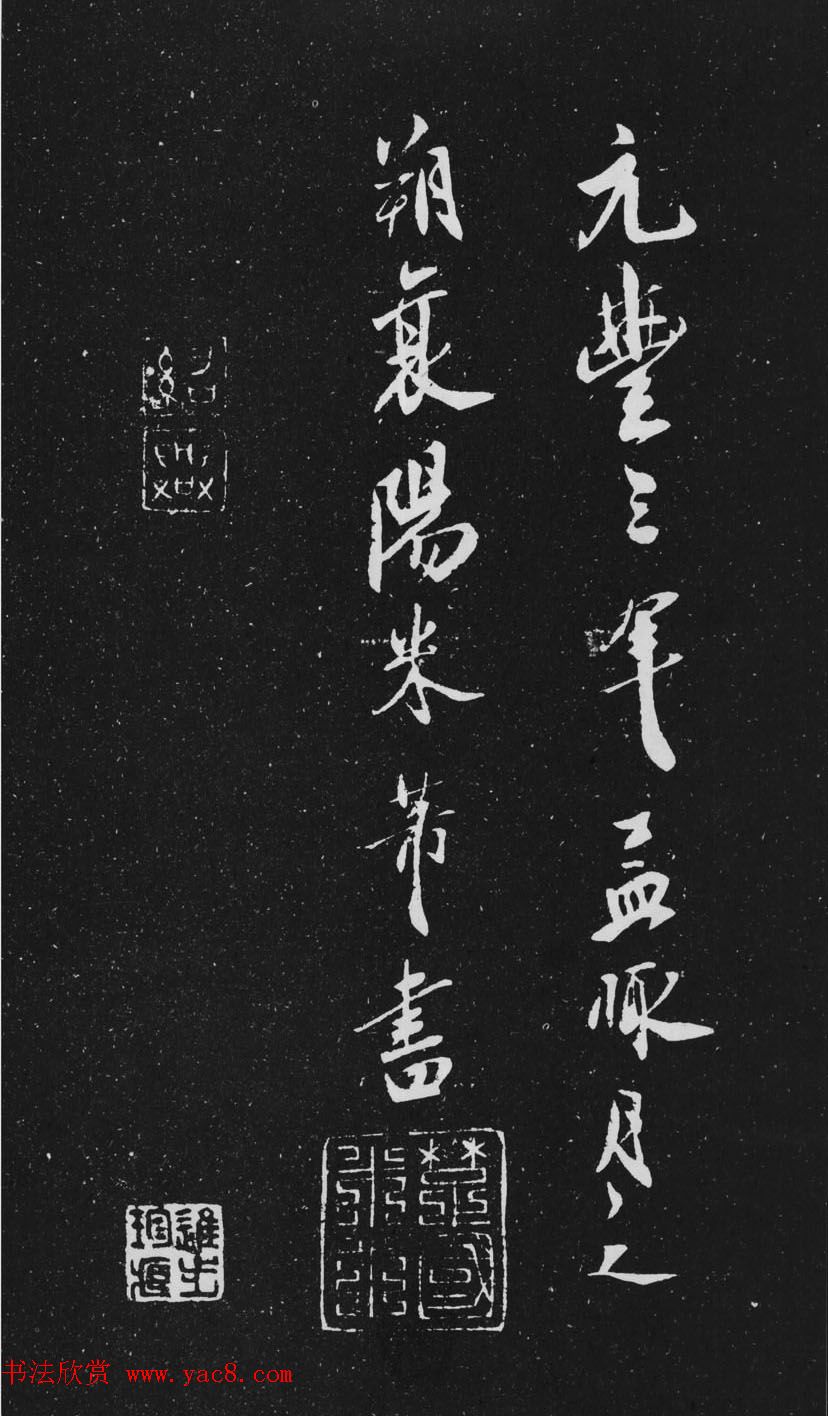 元豐三年孟陬月之
朔襄陽米芾書
紹興
书法欣赏 www.yac8.com